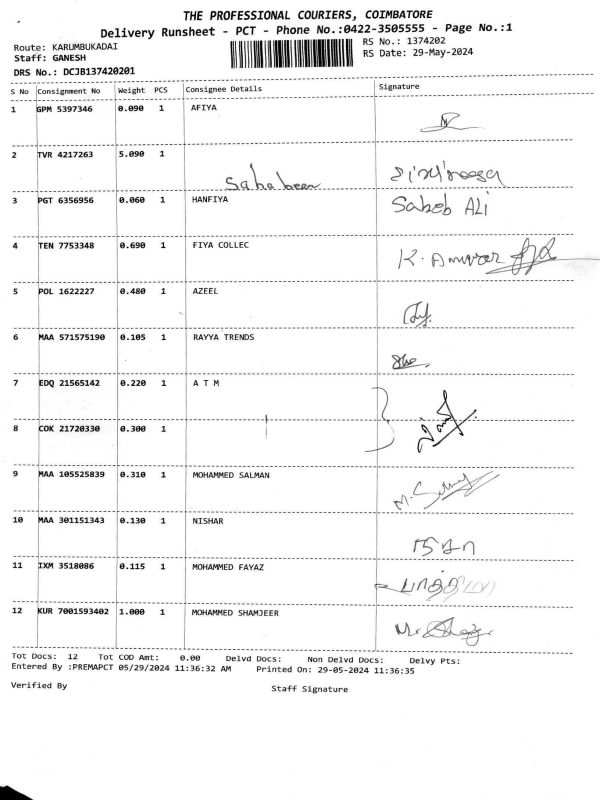 THE PROFESSIONAL COURIERS, COIMBATORE
Delivery Runsheet - PCT - Phone No.:0422-3505555 - Page No.:1
Route: KARUMBUKADAI
RS No.: 1374202
Staff: GANESH
RS Date: 29-May-2024
DRS No.: DCJB137420201
S No Consignment No Weight PCS Consignee Details Signature
1 GPM 5397346 0.090 1 AFIYA
2 TVR 4217263 5.090 1
Sahabeen
3 PGT 6356956 0.060 1 HANFIYA Saheb ALi
4 TEN 7753348 0.690 1 FIYA COLLEC K. Anwar
5 POL 1622227 0.480 1 AZEEL
6 MAA 571575190 0.105 1 RAYYA TRENDS
7 EDQ 21565142 0.220 1 A T M
8 COK 21720330 0.300 1
9 MAA 105525839 0.310 1 MOHAMMED SALMAN
10 MAA 301151343 0.130 1 NISHAR
11 IXM 3518086 0.115 1 MOHAMMED FAYAZ
12 KUR 7001593402 1.000 1 MOHAMMED SHAMJEER
Tot Docs: 12 Tot COD Amt: 0.00 Delvd Docs: Non Delvd Docs: Delvy Pts:
Entered By :PREMAPCT 05/29/2024 11:36:32 AM Printed On: 29-05-2024 11:36:35
Verified By Staff Signature